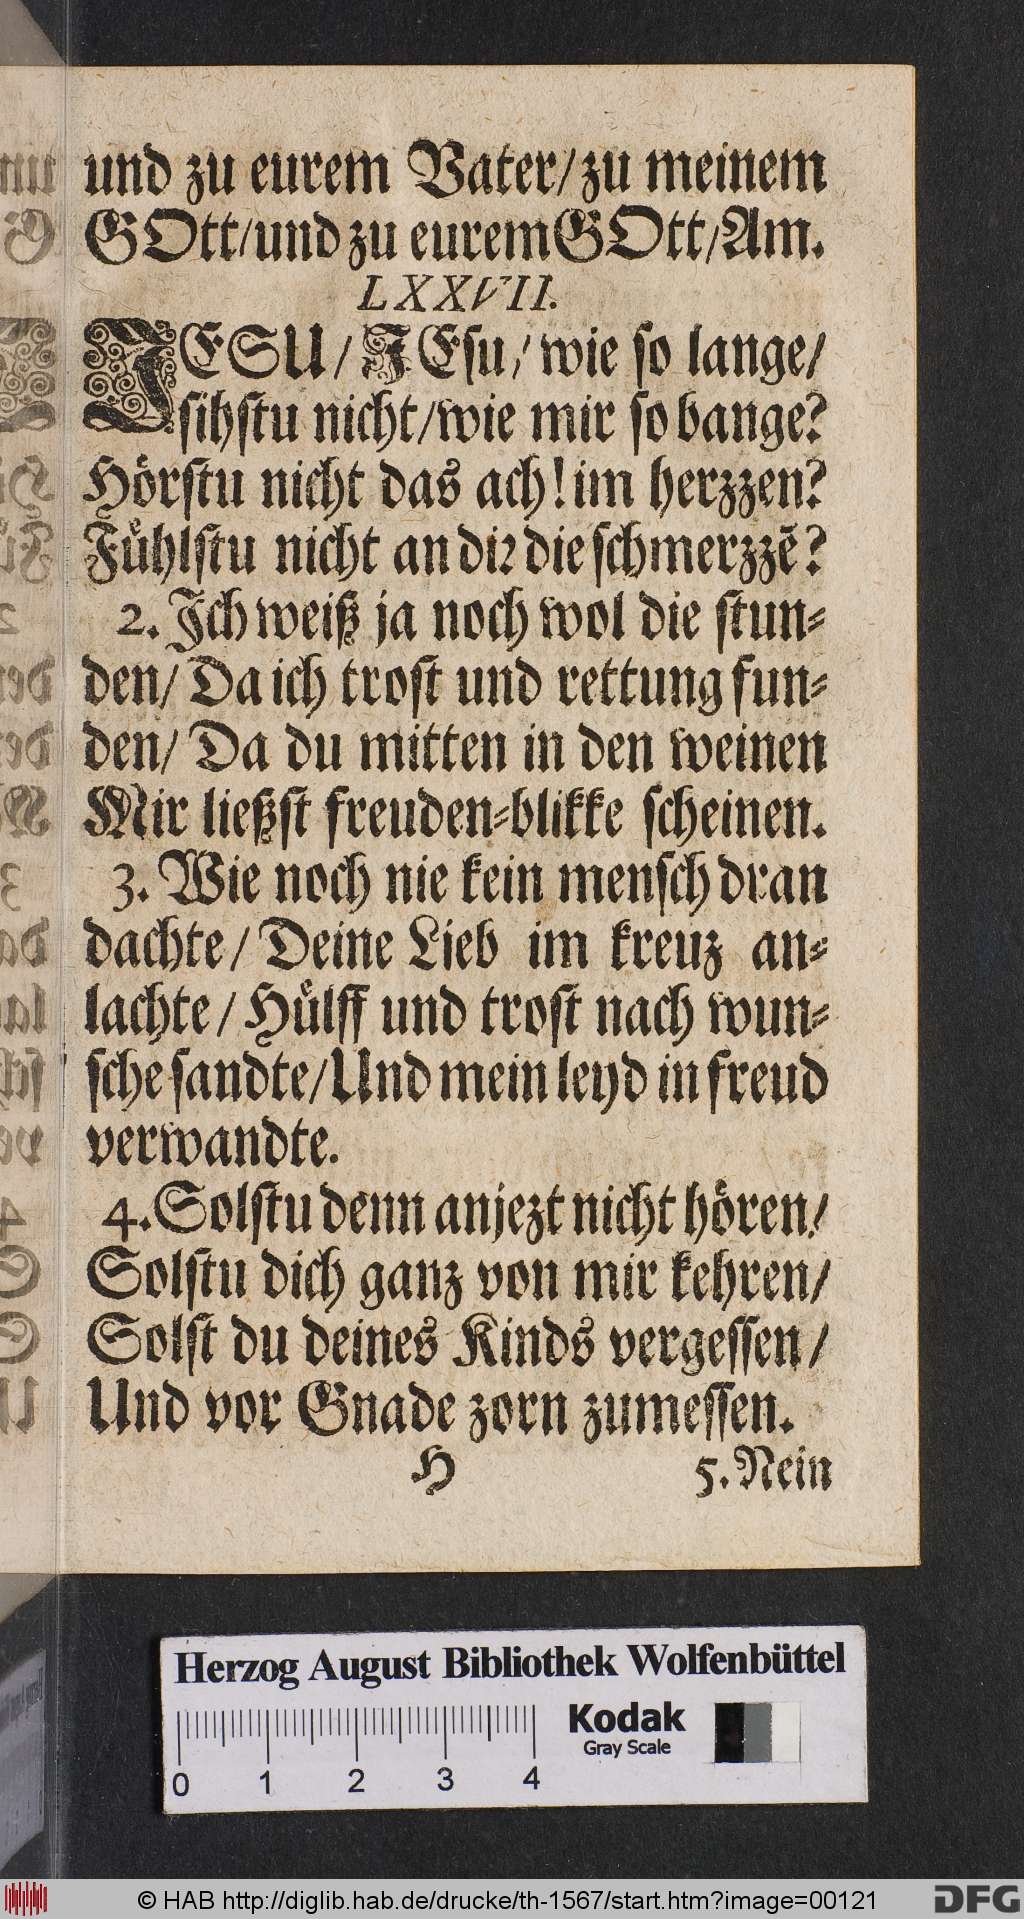 und zu eurem Vater/ zu meinem
GOtt/ und zu eurem GOtt/ Am.
LXXVII.
JESU/ JEsu/ wie so lange/
sihstu nicht/ wie mir so bange?
Hörstu nicht das ach! im herzzen?
Fühlstu nicht an dir die schmerzzẽ?
2. Ich weiß ja noch wol die stun-
den/ Da ich trost und rettung fun-
den/ Da du mitten in den weinen
Mir ließst freuden-blikke scheinen.
3. Wie noch nie kein mensch dran
dachte/ Deine Lieb im kreuz an-
lachte/ Hülff und trost nach wun-
sche sandte/ Und mein leyd in freud
verwandte.
4. Solstu denn anjezt nicht hören/
Solstu dich ganz von mir kehren/
Solst du deines Kinds vergessen/
Und vor Gnade zorn zumessen.
H 5. Nein
Herzog August Bibliothek Wolfenbüttel
Kodak
Gray Scale
0 1 2 3 4
© HAB http://diglib.hab.de/drucke/th-1567/start.htm?image=00121
DFG